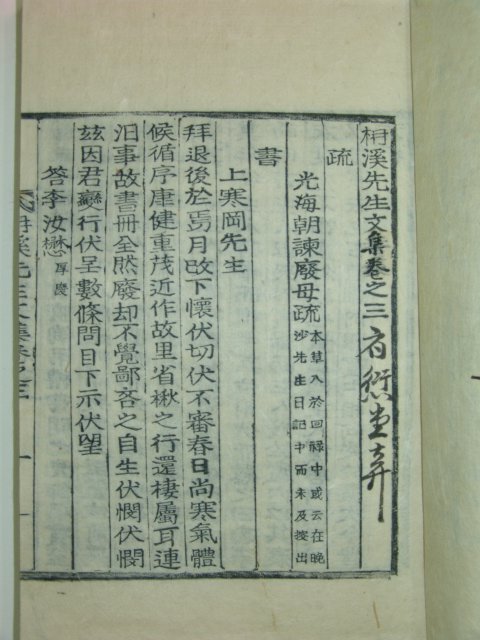 桐溪先生文集卷之三
疏
光海朝諫廢母疏 本草入於回祿中或云在晚沙先生日記中而未及搜出
書
上寒岡先生
拜退後於焉月改下懷伏切伏不審春日尚寒氣體
候循序康健重茂近作故里省楸之行還棲屬耳連
汩事故書冊全然廢却不覺鄙吝之自生伏憫伏憫
玆因君變行伏呈數條問目下示伏望
答李汝懋 厚慶